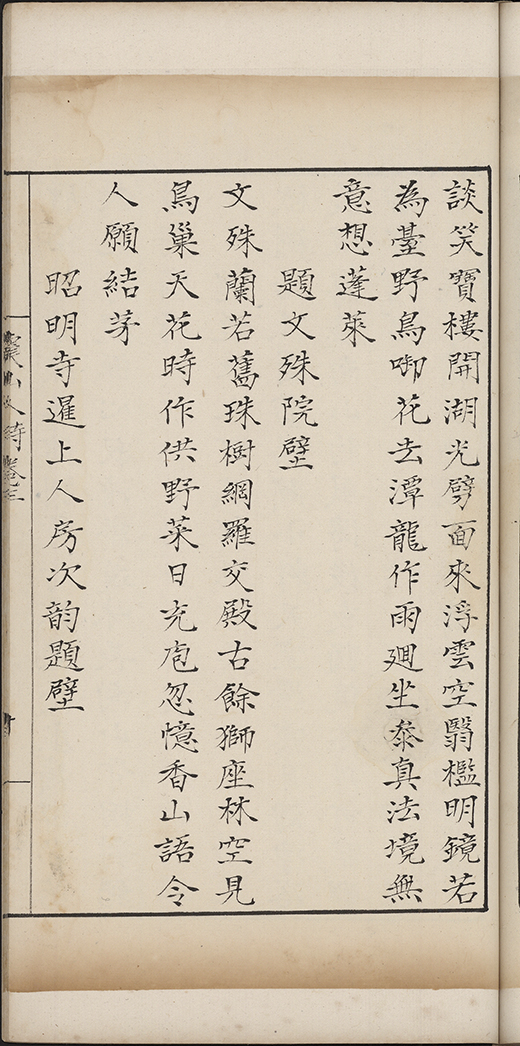 談笑寶樓開湖光劈面來浮雲空翳檻明鏡若
為臺野鳥啣花去潭龍作雨廻坐叅真法境無
意想蓬萊
題文殊院壁
文殊蘭若舊珠樹綱羅交殿古餘獅座林空見
鳥巢天花時作供野菜日充庖忽憶香山語令
人願結茅
昭明寺暹上人房次韵題壁
人詩 卷之三